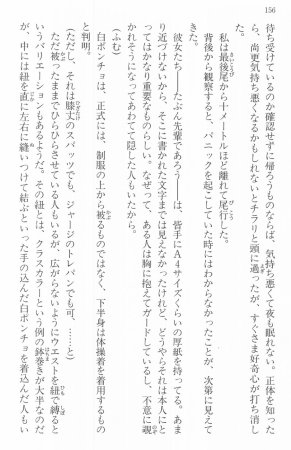 156
待ち受けているのか確認せずに帰ろうものならば、気持ち悪くて夜も眠れない。正体を知った
ら、尚更気持ち悪くなるかもしれないとチラリと頭に過ったが、すぐさま好奇心が打ち消し
た。
私は最後尾から十メートルほど離れて尾行した。
背後から観察すると、パニックを起こしていた時にはわからなかったことが、次第に見えて
きた。
彼女たち――たぶん先輩であろう――は、皆手にA4サイズくらいの厚紙を持ってる。あま
り近づけないから、そこに書かれた文字までは見えなかったけれど、どうやらそれは本人にと
ってはかなり重要なものらしい。なぜって、ある人は胸に抱えてガードしているし、不意に覗
かれそうになってあわてて隠した人もいたから。
(ふむ)
白ポンチョは、正式には、制服の上から被るものではなく、下半身は体操着を着用するもの
と判明。
ただし、それは膝丈のスパッツでも、ジャージのトレパンでも可、……と
ただ被ったままでひらひらさせている人もいるが、広がらないようにウエストを紐で縛ると
いうバリエーションもあるようだ。その紐とは、クラスカラーという例の鉢巻きが大半なのだ
が、中には紐を直に左右に縫いつけて結ぶといった手の込んだ白ポンチョを着込んだ人もい